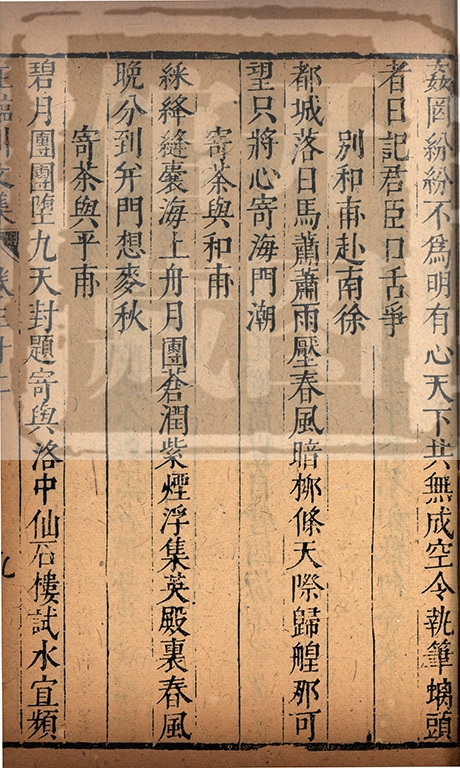 姦罔紛紛不為明有心天下共無成空令執筆螭頭
者日記君臣口舌爭
別和甫赴南徐
都城落日馬蕭蕭雨壓春風暗柳條天際歸艎那可
望只將心寄海門潮
寄茶與和甫
綵絳縫囊海上舟月團蒼潤紫煙浮集英殿裏春風
晚分到并門想麥秋
寄茶與平甫
碧月團團墮九天封題寄與洛中仙石樓試水宜頻
王臨川文集 卷三十二
九